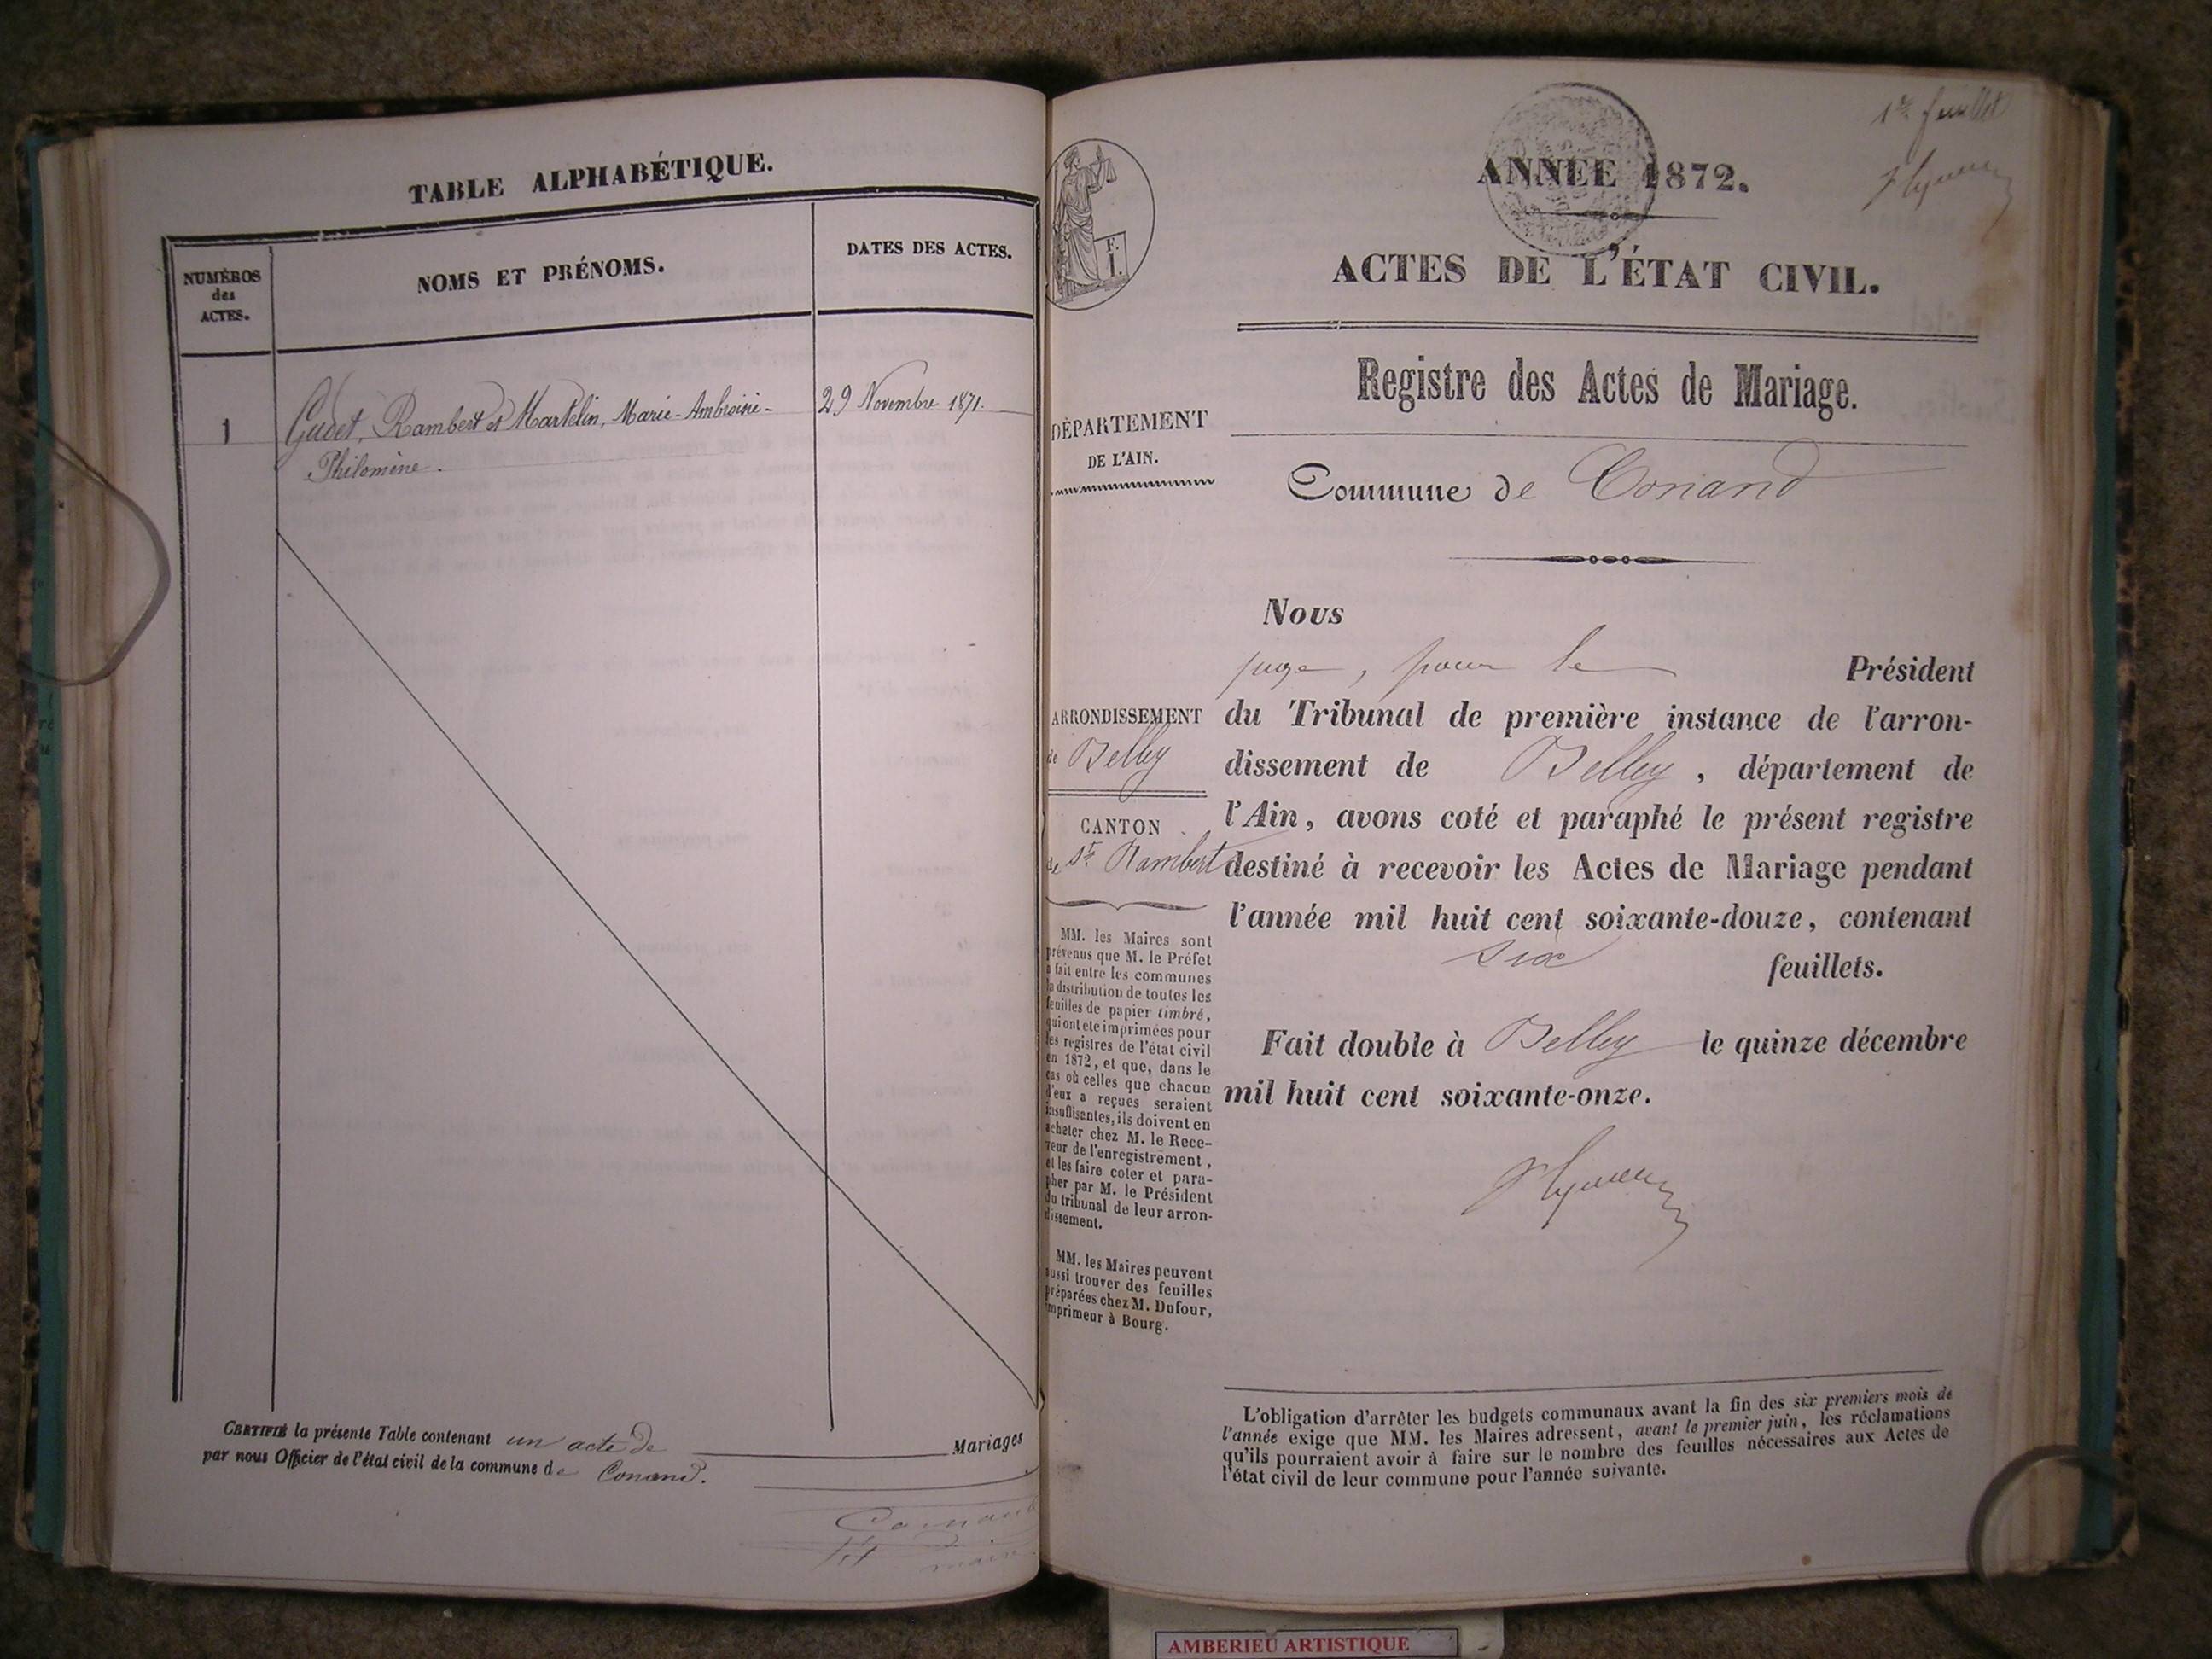 TABLE ALPHABÉTIQUE.
NUMÉROS
des
ACTES.
NOMS ET PRÉNOMS.
DATES DES ACTES.
1
Gudet, Rambert et Martelin, Marie-Ambroisie-
Philomène.
29 Novembre 1871.
CERTIFIÉ la présente Table contenant un acte de Mariages
par nous Officier de l'état civil de la commune de Conand.
maire
1er feuillet
ANNÉE 1872.
ACTES DE L'ÉTAT CIVIL.
Registre des Actes de Mariage.
F.
I.
DÉPARTEMENT
DE L'AIN.
Commune de Conand
Nous
juge, pour le Président
ARRONDISSEMENT
de Belley
CANTON
de St. Rambert
du Tribunal de première instance de l'arron-
dissement de Belley, département de
l'Ain, avons coté et paraphé le présent registre
destiné à recevoir les Actes de Mariage pendant
l'année mil huit cent soixante-douze, contenant
six feuillets.
Fait double à Belley le quinze décembre
mil huit cent soixante-onze.
MM. les Maires sont
prévenus que M. le Préfet
a fait entre les communes
la distribution de toutes les
feuilles de papier timbré,
qui ont ete imprimées pour
les registres de l'état civil
en 1872, et que, dans le
cas où celles que chacun
d'eux a reçues seraient
insuffisantes, ils doivent en
acheter chez M. le Rece-
veur de l'enregistrement,
et les faire coter et para-
pher par M. le Président
du tribunal de leur arron-
dissement.
MM. les Maires peuvent
aussi trouver des feuilles
préparées chez M. Dufour,
imprimeur à Bourg.
L'obligation d'arrêter les budgets communaux avant la fin des six premiers mois de
l'année exige que MM. les Maires adressent, avant le premier juin, les réclamations
qu'ils pourraient avoir à faire sur le nombre des feuilles nécessaires aux Actes de
l'état civil de leur commune pour l'année suivante.
AMBERIEU ARTISTIQUE